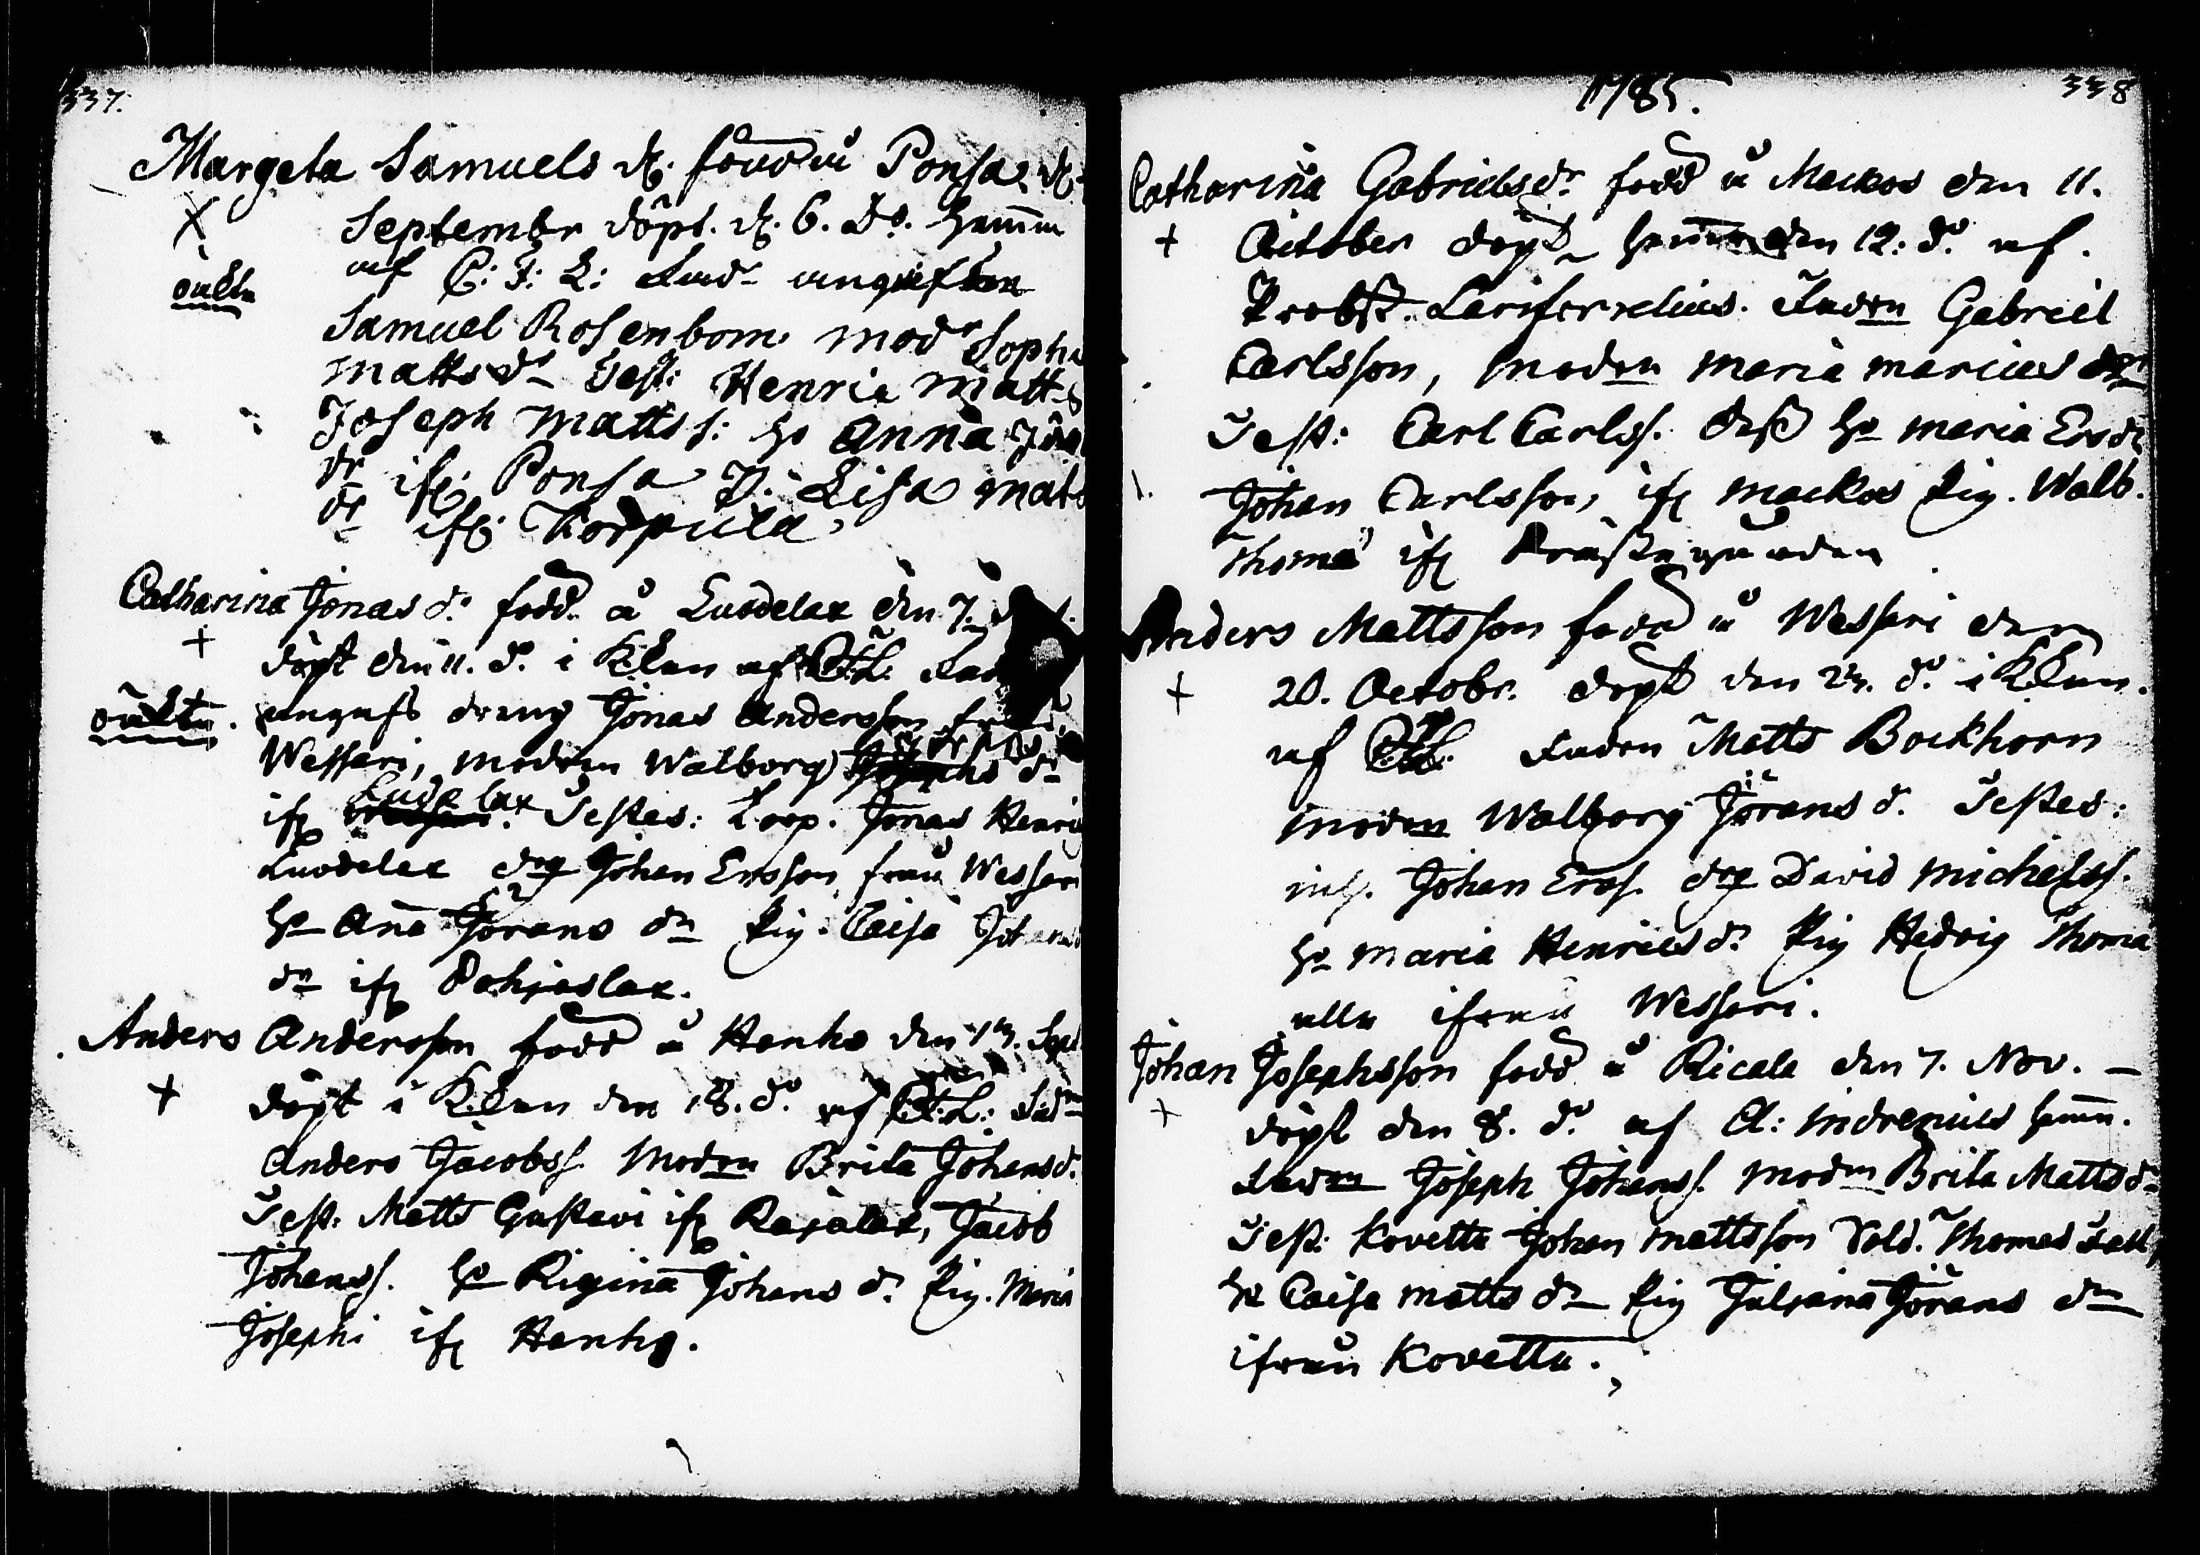 337.
Margeta Samuels dr. född å Ponsa d.
X Septembr döpt. d. 6. do. hemma
oäkta af C: F: L: Fadr ungkarlen
Samuel Rosenbom modr Sophi
Matts dr Test: Henric Matts
Joseph Matts s: ho Anna Jör
dr ifr. Ponsa P. Lisa Mats
dr ifr. Korpula
Catharina Jonas dr född å Luodelax den 7.
+ döpt den 11. do i Kkan af CFL. Fad
oäkta. ungaft dreng Jonas Andersson från
Wessari, modren Walborg Josephs dr
Luodelax
ifr Testes: Loop. Jonas Henric
Luodelax drg Johan Ersson från Wessari
ho Ana Jörans dr pig. Caisa Johans
dr ifr Pohjaslax.
Anders Andersson född å Hanho den 17. Sept
+ döpt i Kkan den 18. do af CFL: Fadr
Anders Jacobss. modren Brita Johansd.
Test. Matts Gustavi ifr Rajalax, Jacob
Johanss. ho Rigina Johans dr pig. Maria
Josephi ifr Hanho.
1785. 338
Catharina Gabrielsdr född å Mackos den 11.
+ October döpt hemma den 12. do af
Probst. Fadren Gabriel
Carlsson, modren Maria Marcus dr
Test: Carl Carlss. dess ho Maria Ersdr
Johan Carlsson, ifr Mackos pig. Walb.
Thoma ifr Prästegården
Anders Mattsson född å Wessari den
+ 20. Octobr. döpt den 23. do i Kkan.
af CFL. Fadren Matts Bockhorn
modren Walborg Jörans dr. Testes:
inh. Johan Ers. drg David Michelss.
ho Maria Henricsdr pig Hedvig Thoma
alla ifrån Wessari.
Johan Josephsson född å Ricala den 7. Nov.
+ döpt den 8. do af A: Indrenius hemm.
Fadren Joseph Johanss. modren Brita Mattsdr
Test: Kovetta Johan Mattsson Sold. Thomas
ho Caisa Matts dr pig Juljana Jörans dr
ifrån Kovetta.